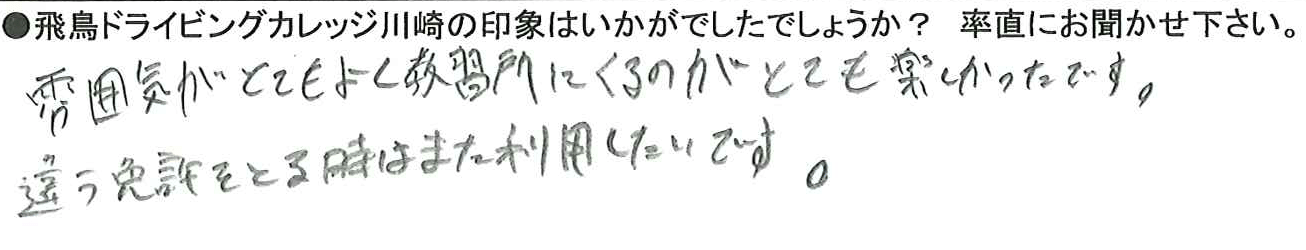 ●飛鳥ドライビングカレッジ川崎の印象はいかがでしたでしょうか？　率直にお聞かせ下さい。
雰囲気がとてもよく教習所にくるのがとても楽しかったです。
違う免許をとる時はまた利用したいです。